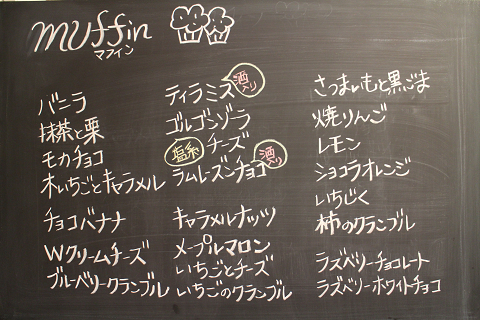 muffin
マフィン
バニラ
抹茶と栗
モカチョコ
木いちごとキャラメル
チョコバナナ
Wクリームチーズ
ブルーベリークランブル
ティラミス 酒入り
ゴルゴンゾラ
塩系 チーズ
ラムレーズンチョコ 酒入り
キャラメルナッツ
メープルマロン
いちごとチーズ
いちごのクランブル
さつまいもと黒ごま
焼りんご
レモン
ショコラオレンジ
いちじく
柿のクランブル
ラズベリーチョコレート
ラズベリーホワイトチョコ